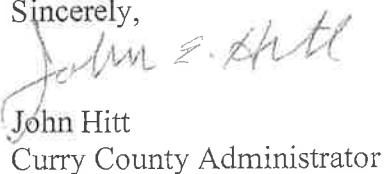 Sincerely,
John E. Hitt
John Hitt
Curry County Administrator